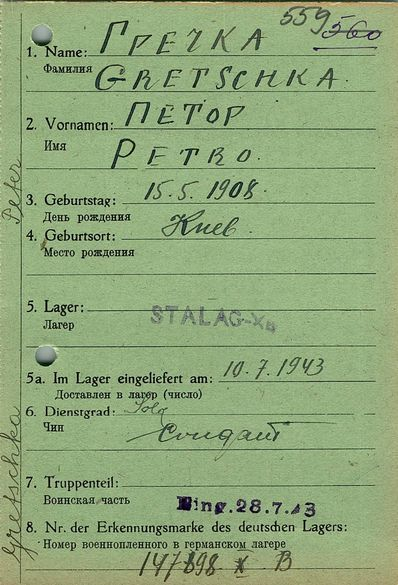 559 560
1. Name: ГРЕЧКА
Фамилия GRETSCHKA
2. Vornamen: ПЕТОР
Имя PETRO
3. Geburtstag: 15.5.1908
День рождения
4. Geburtsort: Киев
Место рождения
5. Lager: STALAG-XB
Лагерь
5a. Im Lager eingeliefert am: 10.7.1943
Доставлен в лагерь (число)
6. Dienstgrad: Sold
Чин Солдат
7. Truppenteil:
Воинская часть Eing. 28.7.43
8. Nr. der Erkennungsmarke des deutschen Lagers:
Номер военнопленного в германском лагере
147898 X B
Gretschka Peter